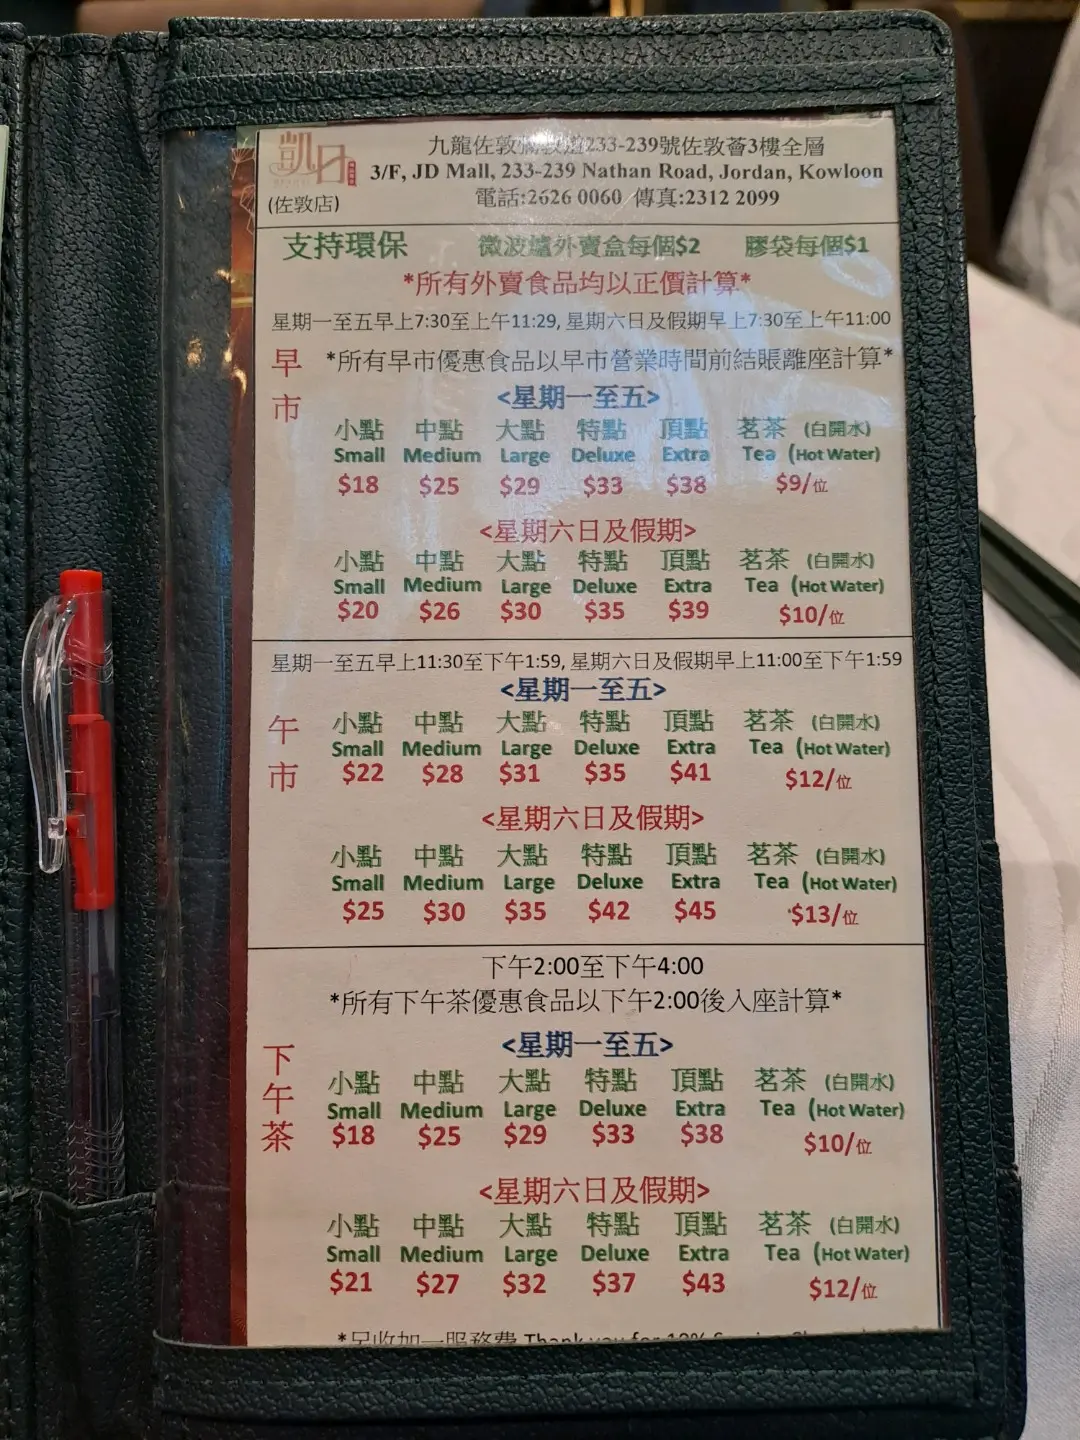 凱日
(佐敦店)
九龍佐敦彌敦道233-239號佐敦薈3樓全層
3/F, JD Mall, 233-239 Nathan Road, Jordan, Kowloon
電話:2626 0060 傳真:2312 2099
支持環保 微波爐外賣盒每個$2 膠袋每個$1
*所有外賣食品均以正價計算*
星期一至五早上7:30至上午11:29, 星期六日及假期早上7:30至上午11:00
早市
*所有早市優惠食品以早市營業時間前結賬離座計算*
<星期一至五>
小點 中點 大點 特點 頂點 茗茶 (白開水)
Small Medium Large Deluxe Extra Tea (Hot Water)
$18 $25 $29 $33 $38 $9/位
<星期六日及假期>
小點 中點 大點 特點 頂點 茗茶 (白開水)
Small Medium Large Deluxe Extra Tea (Hot Water)
$20 $26 $30 $35 $39 $10/位
星期一至五早上11:30至下午1:59, 星期六日及假期早上11:00至下午1:59
<星期一至五>
午市
小點 中點 大點 特點 頂點 茗茶 (白開水)
Small Medium Large Deluxe Extra Tea (Hot Water)
$22 $28 $31 $35 $41 $12/位
<星期六日及假期>
小點 中點 大點 特點 頂點 茗茶 (白開水)
Small Medium Large Deluxe Extra Tea (Hot Water)
$25 $30 $35 $42 $45 $13/位
下午2:00至下午4:00
*所有下午茶優惠食品以下午2:00後入座計算*
<星期一至五>
下午茶
小點 中點 大點 特點 頂點 茗茶 (白開水)
Small Medium Large Deluxe Extra Tea (Hot Water)
$18 $25 $29 $33 $38 $10/位
<星期六日及假期>
小點 中點 大點 特點 頂點 茗茶 (白開水)
Small Medium Large Deluxe Extra Tea (Hot Water)
$21 $27 $32 $37 $43 $12/位
*另收加一服務費 Thank you for 10% Service